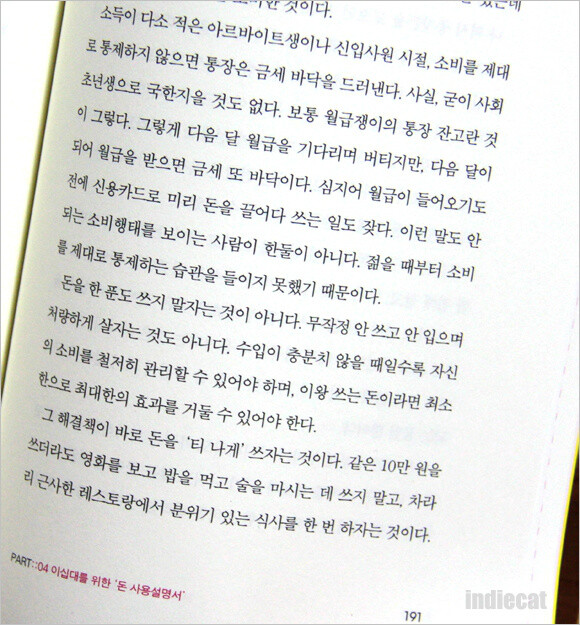 한 것이다.
있는데
소득이 다소 적은 아르바이트생이나 신입사원 시절, 소비를 제대
로 통제하지 않으면 통장은 금세 바닥을 드러낸다. 사실, 굳이 사회
초년생으로 국한지을 것도 없다. 보통 월급쟁이의 통장 잔고란 것
이 그렇다. 그렇게 다음 달 월급을 기다리며 버티지만, 다음 달이
되어 월급을 받으면 금세 또 바닥이다. 심지어 월급이 들어오기도
전에 신용카드로 미리 돈을 끌어다 쓰는 일도 잦다. 이런 말도 안
되는 소비행태를 보이는 사람이 한둘이 아니다. 젊을 때부터 소비
를 제대로 통제하는 습관을 들이지 못했기 때문이다.
돈을 한 푼도 쓰지 말자는 것이 아니다. 무작정 안 쓰고 안 입으며
처량하게 살자는 것도 아니다. 수입이 충분치 않을 때일수록 자신
의 소비를 철저히 관리할 수 있어야 하며, 이왕 쓰는 돈이라면 최소
한으로 최대한의 효과를 거둘 수 있어야 한다.
그 해결책이 바로 돈을 ‘티 나게’ 쓰자는 것이다. 같은 10만 원을
쓰더라도 영화를 보고 밥을 먹고 술을 마시는 데 쓰지 말고, 차라
리 근사한 레스토랑에서 분위기 있는 식사를 한 번 하자는 것이다.
PART::04 이십대를 위한 ‘돈 사용설명서’
191
indiecat